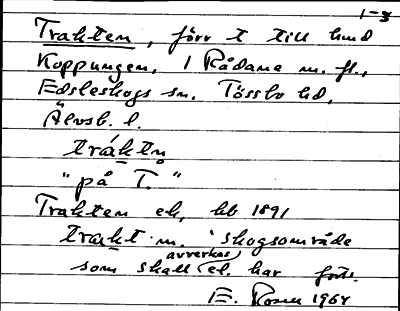 1-3
Trakten, förr t till hmd
Koppungen, 1 Rådane m. fl.,
Edsleskogs sn. Tössbo hd,
Älvsb. l.
tráktn̥
"på T."
Trakten ek, hb 1891
trakt m. 'skogsområde
som skall avverkas el. har
E. Rosen 1964